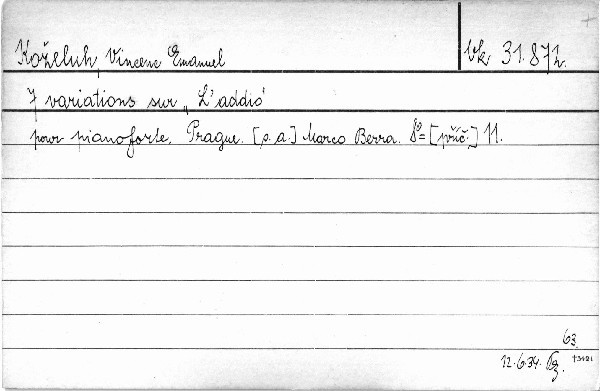 Koželuh, Vincenc Emanuel
31.872.
7 variations sur „L'addio"
pour pianoforte. Prague. [s.a.] Marco Berra. 8°= [příč.] 11.
63.
12.6.34.